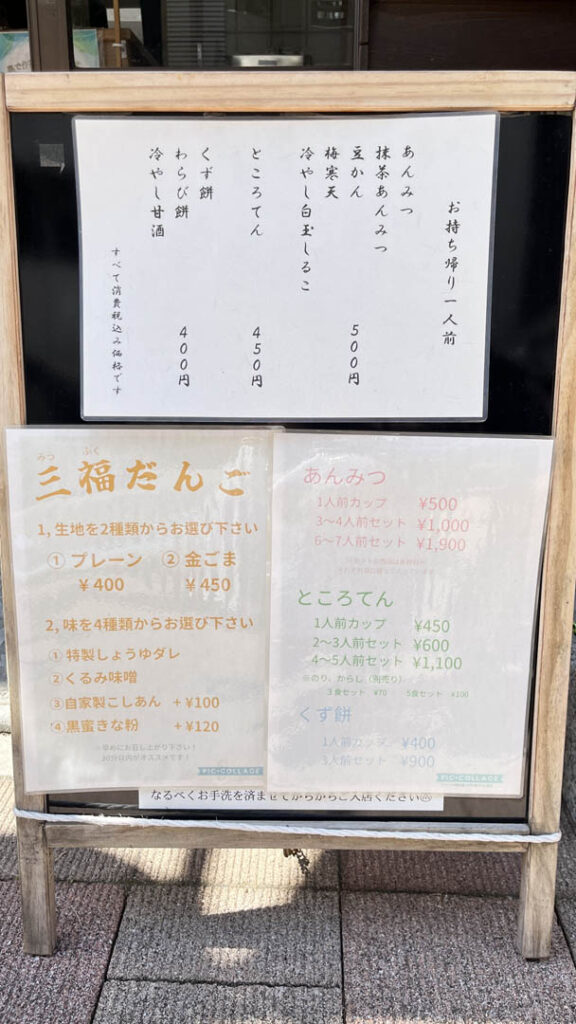 お持ち帰り一人前
あんみつ
抹茶あんみつ
豆かん
梅寒天
冷やし白玉しるこ
500円
ところてん
450円
くず餅
わらび餅
冷やし甘酒
400円
すべて消費税込み価格です
みつ ふく
三福だんご
1, 生地を2種類からお選び下さい
① プレーン ② 金ごま
¥400 ¥450
2, 味を4種類からお選び下さい
①特製しょうゆダレ
②くるみ味噌
③自家製こしあん +¥100
④黒蜜きな粉 +¥120
※早めにお召し上がり下さい!
30分以内がオススメです!
PIC•COLLAGE
あんみつ
1人前カップ ¥500
3〜4人前セット ¥1,000
6〜7人前セット ¥1,900
ところてん
1人前カップ ¥450
2〜3人前セット ¥600
4〜5人前セット ¥1,100
※のり、からし(別売り)
3食セット ¥70 5食セット ¥100
くず餅
1人前カップ ¥400
3人前セット ¥900
PIC•COLLAGE
なるべくお手洗を済ませてからからご入店ください